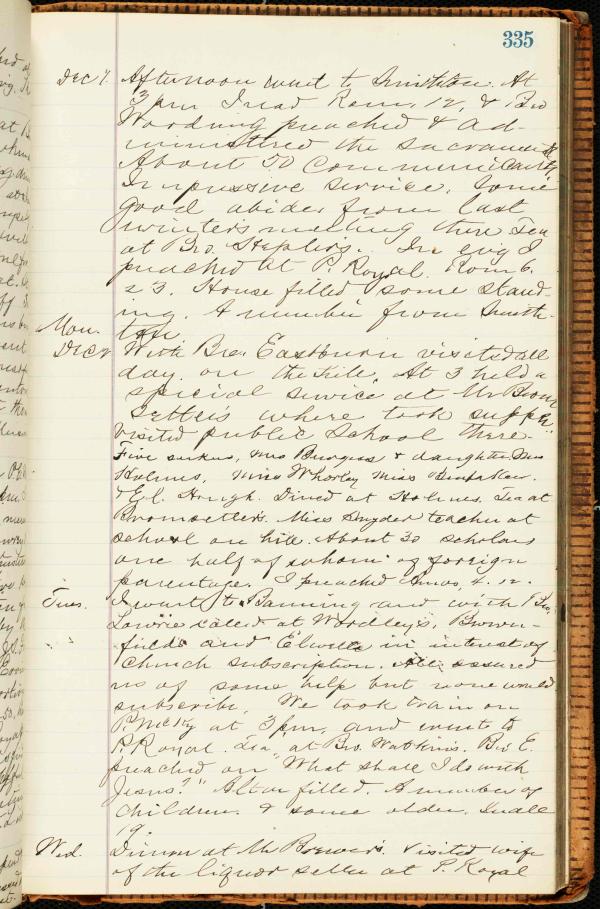 335
Dec 7. Afternoon went to Smithton. At
3 pm I read Rom. 12, & Bro
Wooding preached & ad-
ministered the sacrament
About 50 communicants.
Impressive service. Some
good abides from last
winters meeting there Tea
at Bro. Stepler's. In evg I
preached at P. Royal. Rom 6.
23. House filled some stand-
ing. A number from Smith-
ton.
Mon.
Dec 8 With Bro. Eastburn visited all
day on the hill. At 3 held a
special service at Mr Brom
Setter's where took supper.
Visited public School there.
Five seekers, Mrs Burgess & daughter Mrs
Holmes, Miss Whorley Miss
& E.C. Hough. Dined at Holmes. Tea at
Bromsetler's. Miss Snyder teacher at
school on hill. About 30 scholars
one half of whom of foreign
parentage. I preached Amos, 4.12.
Tues. I went to Banning and with Bro.
Lowrie called at Wordley's, Brown-
fields and in interest of
Church subscription. All assured
us of some help but none would
subscribe. We took train on
P. McK & Y at 3 pm, and went to
P. Royal. Tea at Bro. Watkins. Bro E.
preached on "What shall I do with
Jesus?" Altar filled. A number of
children & some older. In all
19.
Wed. Dinner at Mr Brewer's. Visited wife
of the liquor seller at P. Royal